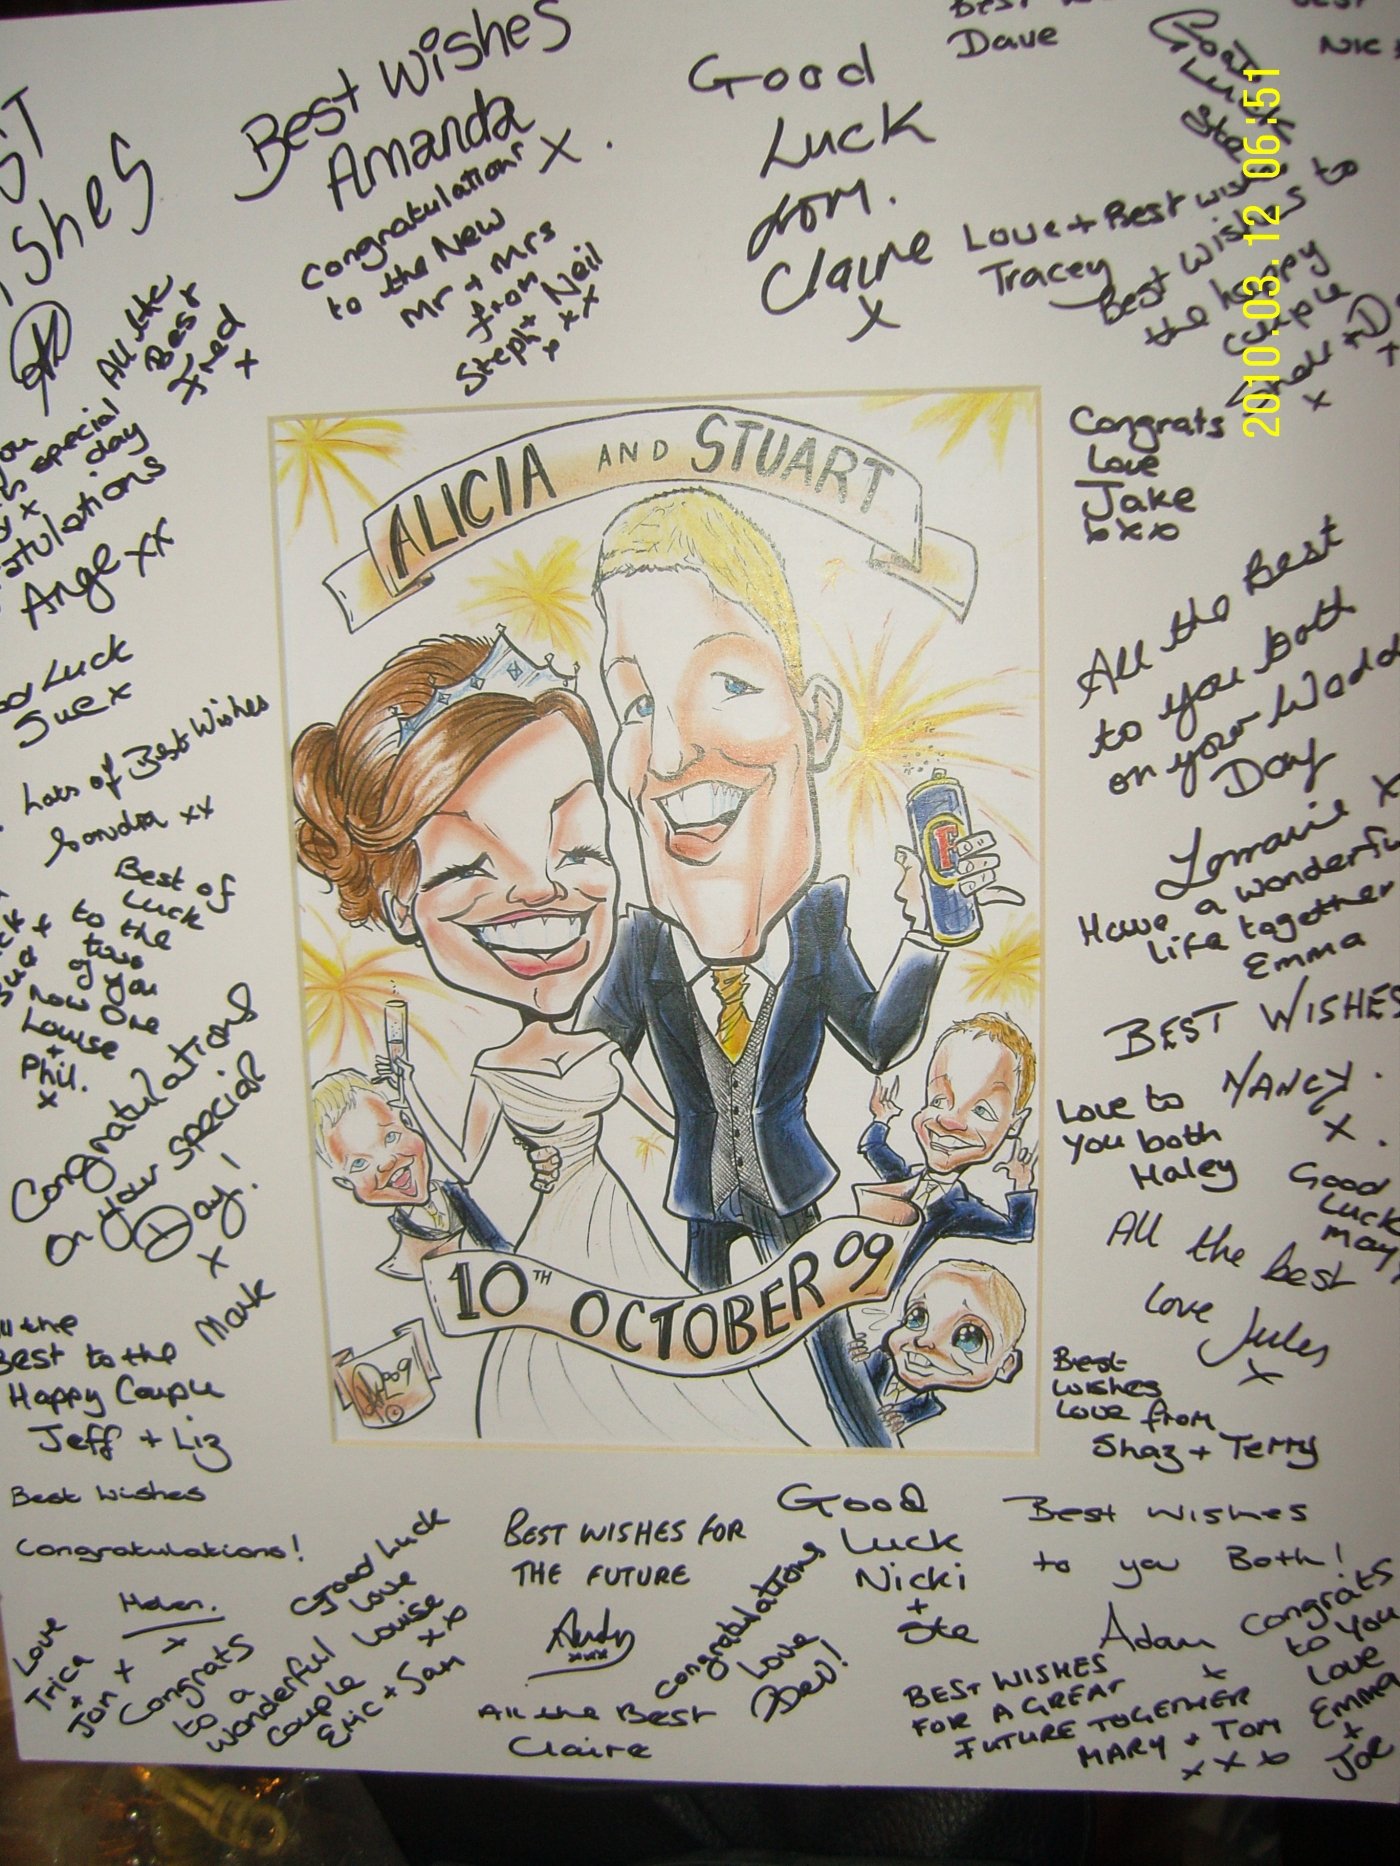 Best Wishes
Amanda
x
Congratulations
to the New
Mr + Mrs
from
Steph + Neil
xx
Good
Luck
from.
Claire
x
Dave
Good
Luck
Ste
Love + Best wishes
Tracey
Best Wishes to
the happy
couple
x
2010.03.12 06:51
All the
Best
Fred
x
special
day
Ange xx
Luck
Sue x
Lots of Best Wishes
Sandra xx
Best of
Luck
to the
two
of you
now One
Louise
+
Phil.
x
Congratulations
on your special
Day!
x
Mark
All the
Best to the
Happy Couple
Jeff + Liz
Best Wishes
Congratulations!
Helen.
x
Love
Trica
+
Jon x
Congrats
to a
wonderful
couple
Eric + Jan
Good Luck
Love
Louise
xxx
ALICIA AND STUART
F
10TH OCTOBER 09
Congrats
Love
Jake
xxx
All the Best
to you both
on your Wedd
Day
Lorraine x
Have a wonderful
life together
Emma
BEST WISHES
NANCY.
x
Love to
you both
Haley
Good
Luck
May
All the best
love Jules
x
Best
wishes
Love from
Shaz + Terry
BEST WISHES FOR
THE FUTURE
Andy
xxx
All the Best
Claire
Congratulations
Love
Bev!
Good
Luck
Nicki
+
Ste
Best Wishes
to you Both!
Adam
x
BEST WISHES
FOR A GREAT
FUTURE TOGETHER
MARY + TOM
xxx
Congrats
to you
Love
Emma
+
Joe